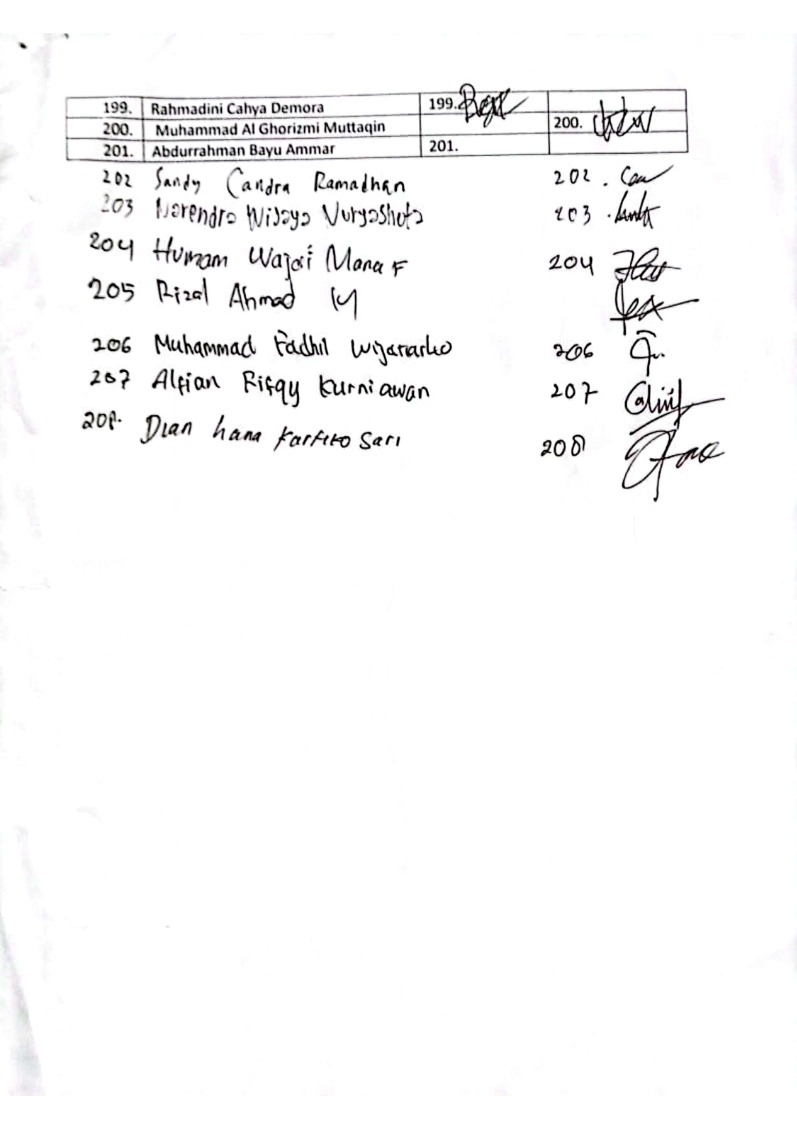 199. Rahmadini Cahya Demora 199.
200. Muhammad Al Ghorizmi Muttaqin 200.
201. Abdurrahman Bayu Ammar 201.
202 Sandy Candra Ramadhan 202.
203 Narendra Wijaya 203.
204 Humam Wajdi Mana F 204
205 Rizal Ahmad M
206 Muhammad Fadhil Wijanarko 206
207 Alfian Rifqy Kurniawan 207
208. Dian hana Sari 208